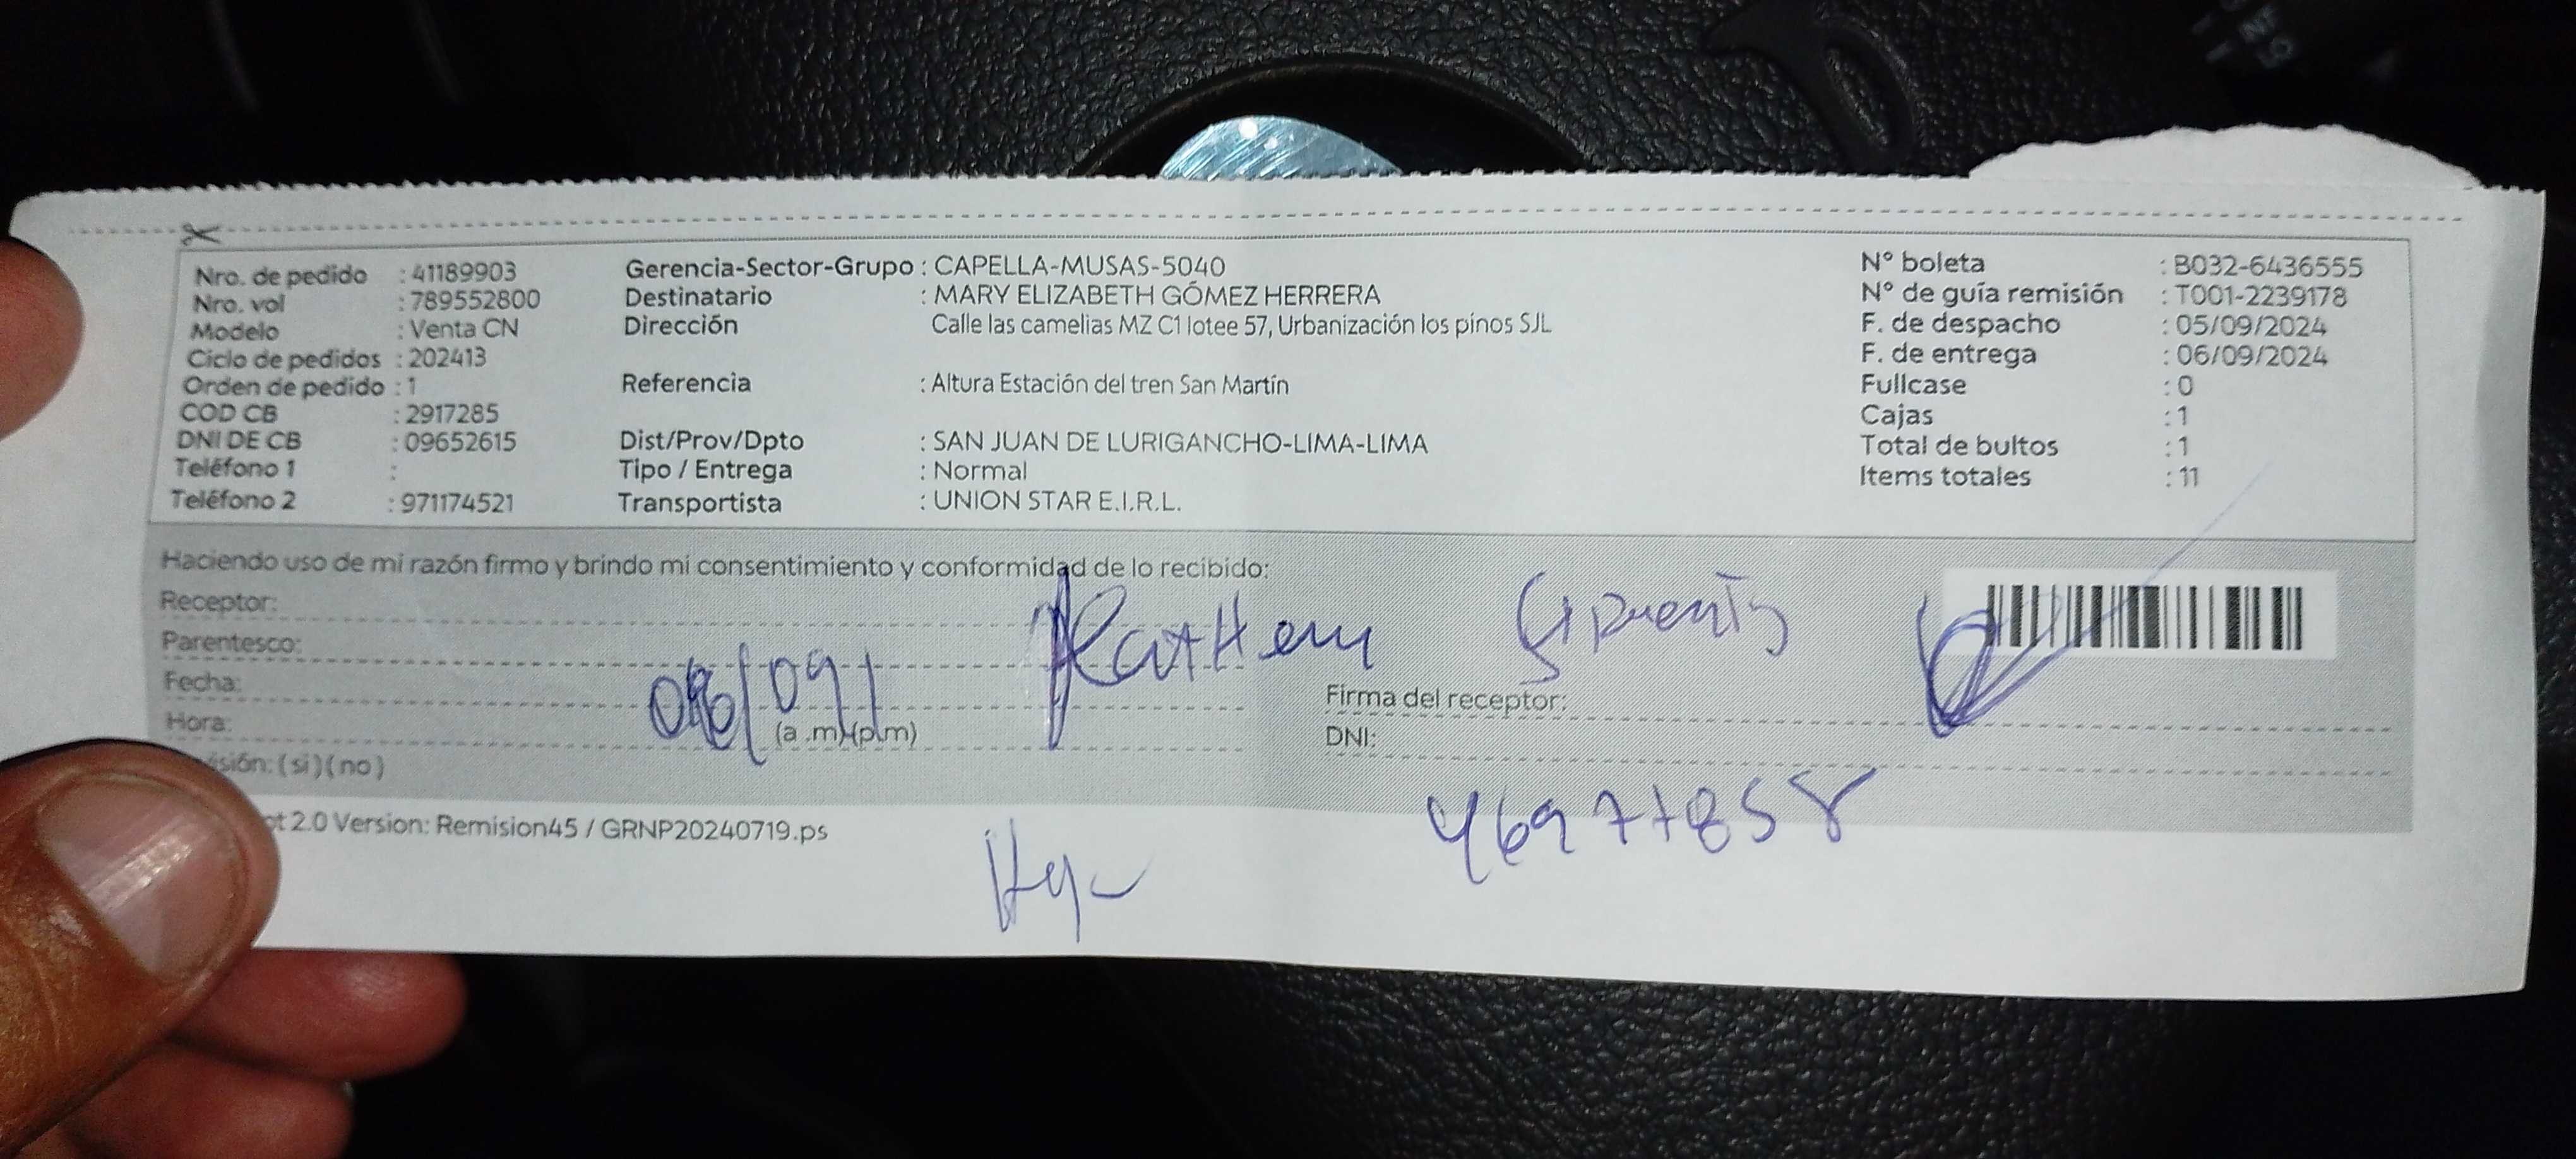 Nro. de pedido : 41189903
Nro. vol : 789552800
Modelo : Venta CN
Ciclo de pedidos : 202413
Orden de pedido : 1
COD CB : 2917285
DNI DE CB : 09652615
Teléfono 1 :
Teléfono 2 : 971174521
Gerencia-Sector-Grupo : CAPELLA-MUSAS-5040
Destinatario : MARY ELIZABETH GÓMEZ HERRERA
Dirección Calle las camelias MZ C1 lotee 57, Urbanización los pinos SJL
Referencia : Altura Estación del tren San Martín
Dist/Prov/Dpto : SAN JUAN DE LURIGANCHO-LIMA-LIMA
Tipo / Entrega : Normal
Transportista : UNION STAR E.I.R.L.
N° boleta : B032-6436555
N° de guía remisión : T001-2239178
F. de despacho : 05/09/2024
F. de entrega : 06/09/2024
Fullcase : 0
Cajas : 1
Total de bultos : 1
Items totales : 11
Haciendo uso de mi razón firmo y brindo mi consentimiento y conformidad de lo recibido:
Receptor:
Parentesco:
Fecha: 06/09/
Hora: (a .m) (p.m)
(si) (no)
Firma del receptor:
DNI:
46977858
2.0 Version: Remision45 / GRNP20240719.ps